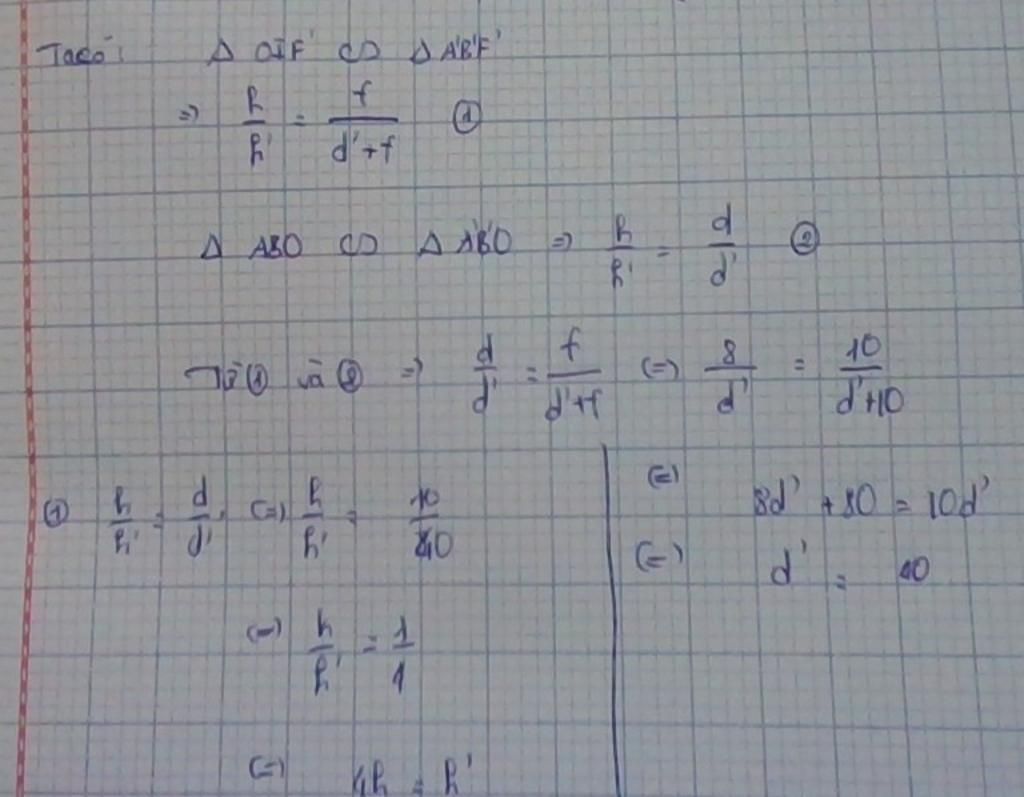 Ta có: Δ OIF' ∽ Δ A'B'F'
=> h/h' = f/(d'+f) ①
Δ ABO ∽ Δ A'B'O => h/h' = d/d' ②
Từ ① và ② => d/d' = f/(d'+f) (=) 8/d' = 10/(d'+10)
(=) 8d' + 80 = 10d'
(=) d' = 40
① h/h' = d/d' (=) h/h' = 10/40
(=) h/h' = 1/4
(=) 4h = h'